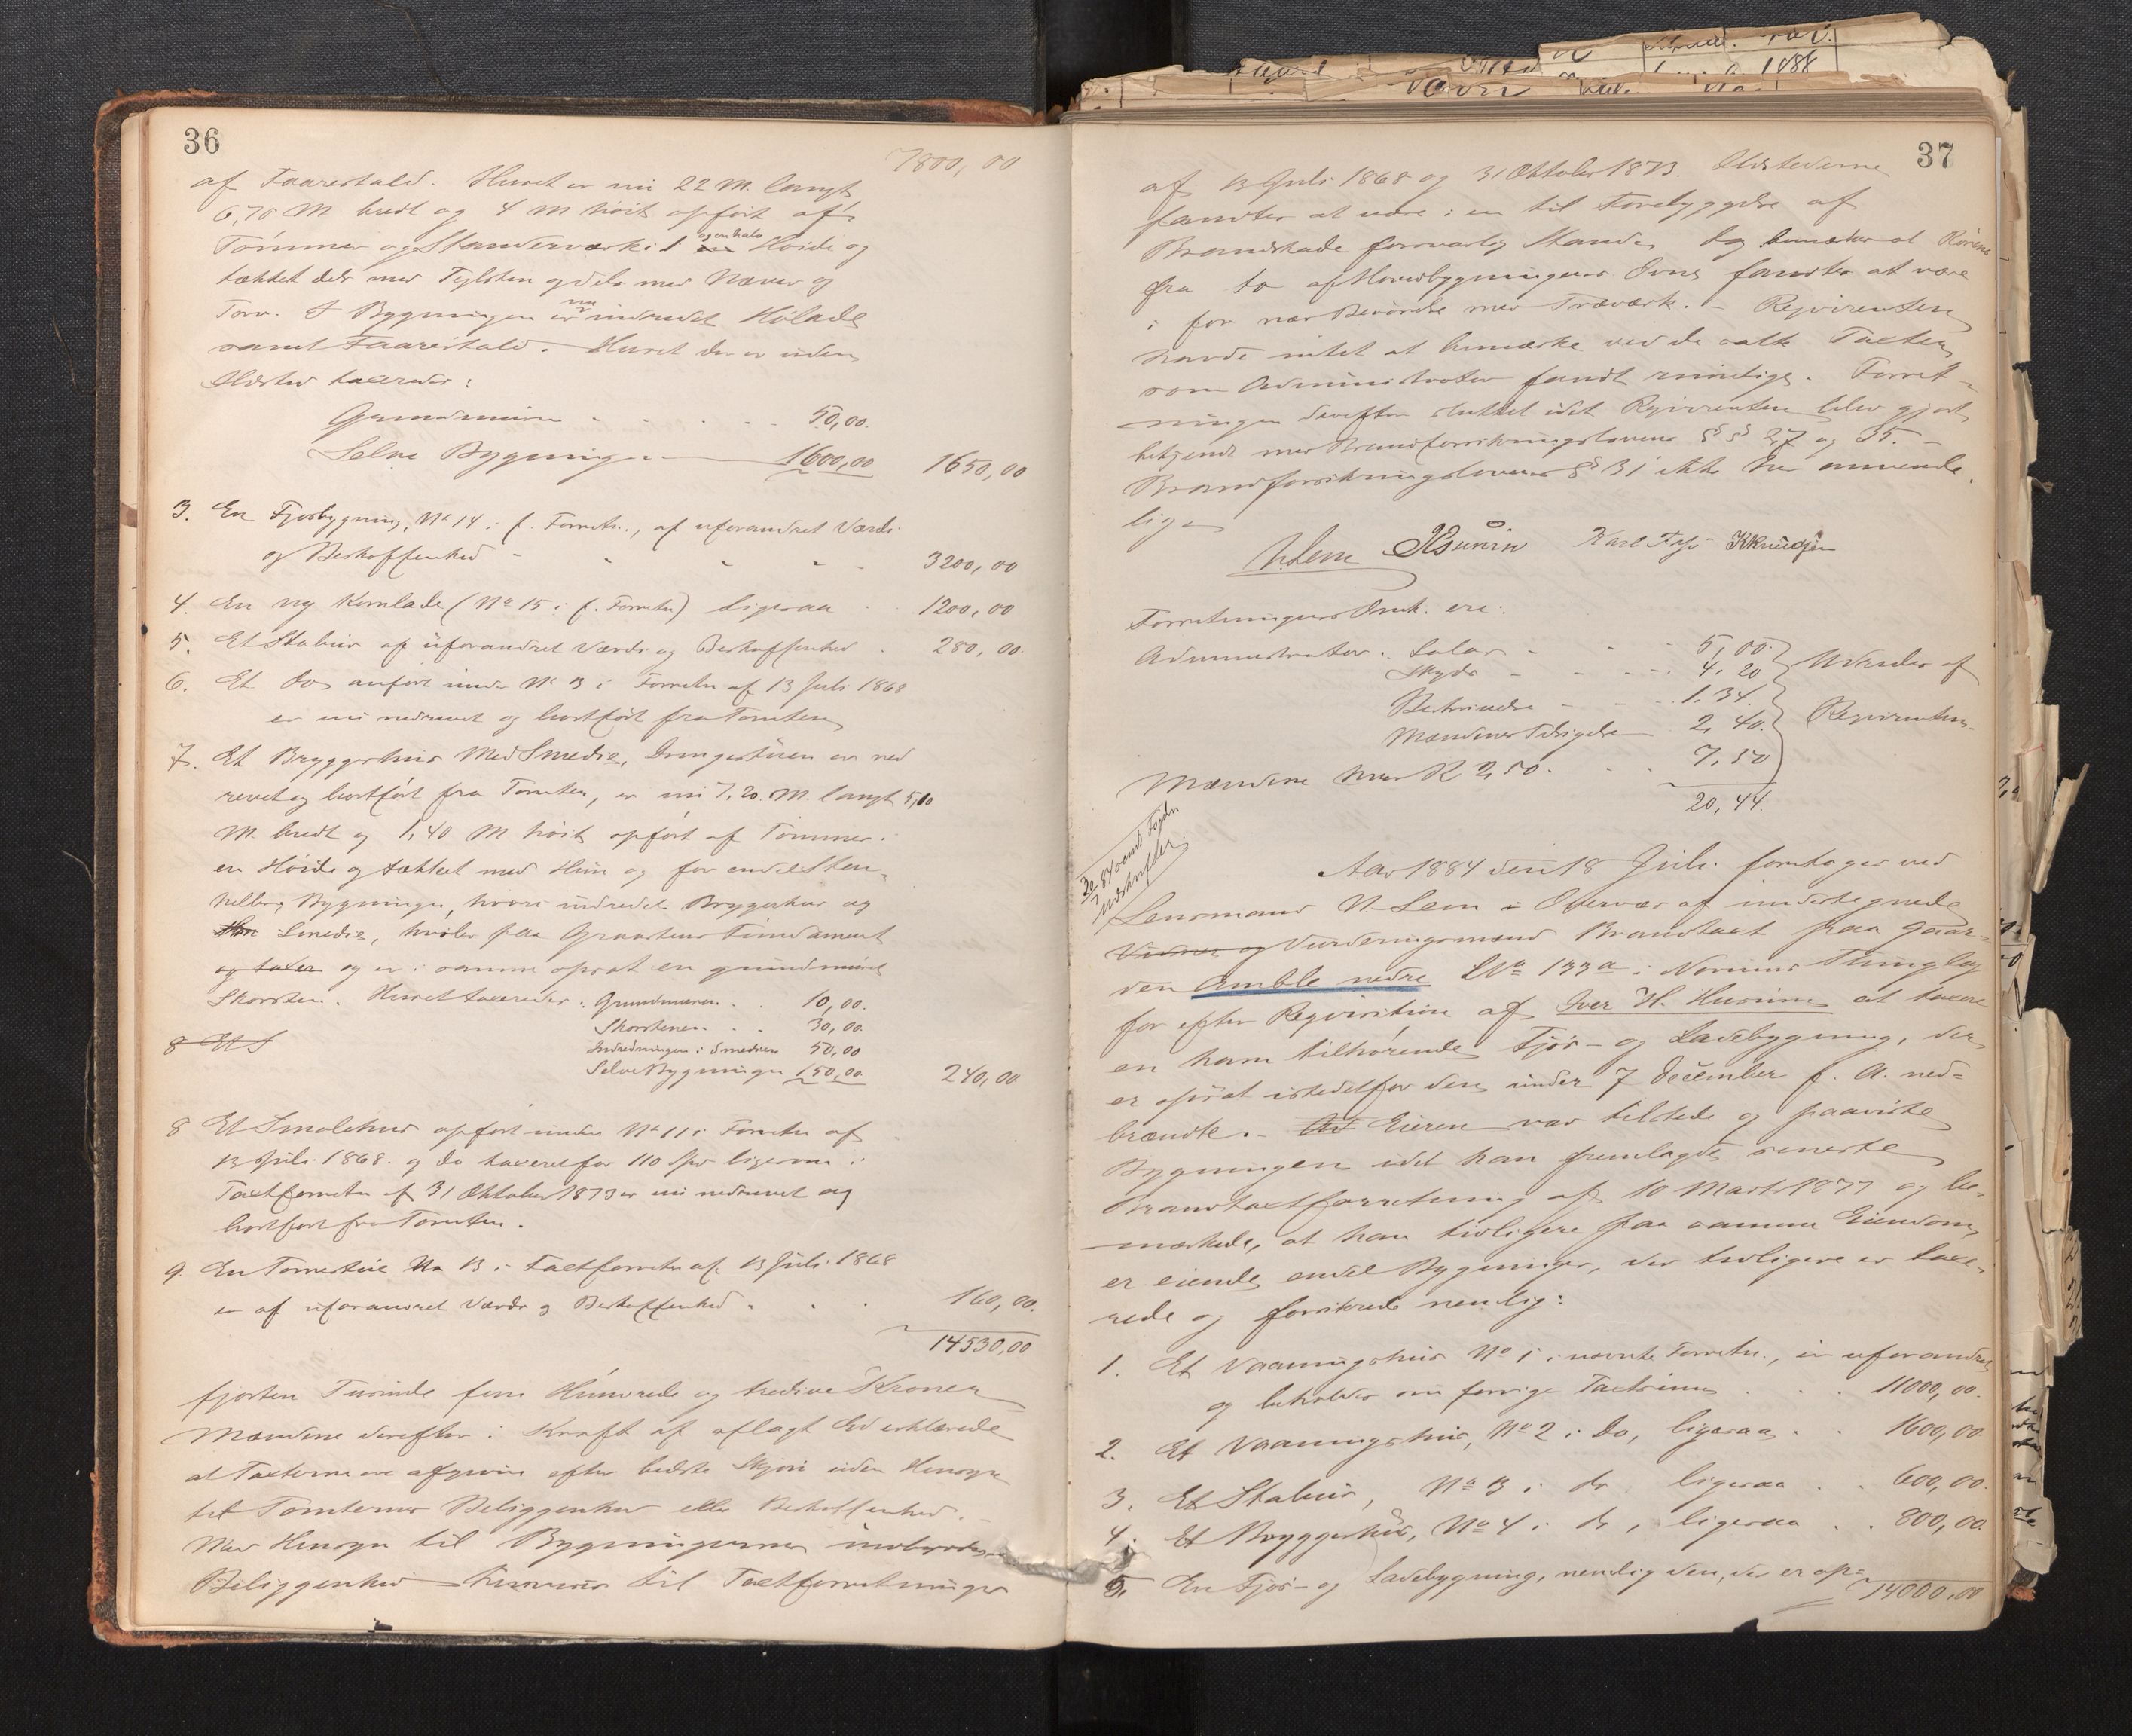 36
7800,00
af Faarestald. Huset er nu 22 M. langt
6,70 M bredt og 4 M höit opfört af
Tömmer og Standerværk i 1 og en halv Höide og
tækket dels med Teglsten og dels med Næver og
Torv. I Bygningen er nu indredet Hölade
samt Faarestald. Huset der er uden
Ildsted taxeredes:
Grundmuren 50,00.
Selve Bygningen 1600,00 1650,00
3. En Fjösbygning, No 14 i f. Forretn., af uforandret Værdi
og Beskaffenhed 3200,00
4. En ny Kornlade (No 15 i f. Forretn) ligesaa 1200,00
5. Et Stabur af uforandret Værdi og Beskaffenhed 280,00.
6. Et do anfört under No 3 i Forretn af 13 Juli 1868
er nu nedrevet og bortfört fra Tomten
7. Et Bryggerhus med Smedie, Drengestuen er ned
revet og bortfört fra Tomten, er nu 7,20 M. langt 5,10
M. bredt og 1,40 M höit opfört af Tömmer i
en Höide og tækket med Hun og for endel Sten-
heller, Bygningen, hvori indredet Bryggerhus og
Smedie, hviler paa Graastens Fundament
og taxer og er i samme opsat en grundmuret
Skorsten. Huset taxeredes: Grundmuren 10,00.
Skorstenen 30,00.
8 Et S
Indredningen i Smedien 50,00
Selve Bygningen 150,00 240,00
8 Et Smalehus opfört under No 11 i Forretn af
13 Juli 1868. og da taxeret for 110 Spd ligesom i
Taxtforretn af 31 Oktober 1873 er nu nedrevet og
bortfört fra Tomten.
9. En Torvestue No 13 i Taxtforretn af 13 Juli 1868
er af uforandret Værdi og Beskaffenhed 160,00.
14530,00
fjorten Tusinde fem Hundrede og tredive Kroner
Mændene derefter i Kraft af aflagt Ed erklærede
at Taxterne ere afgivne efter bedste Skjön uden Hensyn
til Tomternes Beliggenhed eller Beskaffenhed.
Med Hensyn til Bygningernes indbyrdes
Beliggenhed henvises til Taxtforretninger
37
af 13 Juli 1868 og 31 Oktober 1873. Ildstederne
fandtes at være i en til Forebyggelse af
Brandskade forsvarlig Stand, dog bemærkes at Rörene
fra to af Hovedbygningens Ovne fandtes at være
i for nær Beröring med Træværk. – Reqvirenten
havde intet at bemærke ved de satte Taxter
som Administrator fandt rimelige. Forret-
ningen derefter sluttet idet Reqvirenten blev gjort
bekjendt med Brandforsikringslovens §§ 27 og 35. –
Brandforsikringslovens § 31 ikke her anvende
lig.
N. Lem Karl KKnudsen
Forretningens Omk. ere:
Administrator: Salær 5,00
Skyds 4,20
Beskrivelse 1,34.
Mændenes Tilsigelse 2,40.
Mændene hver K 2,50. 7,50
20,44.
Udredes af
Reqvirenten.
Aar 1884 den 18 Juli foretoges ved
Lensmand N. Lem i Overvær af undertegnede
Vidner og Vurderingsmænd Brandtaxt paa Gaar-
den Amble nedre LNo 133a i Norums Thinglag
for efter Reqvisition af Iver H. Husum at taxere
en ham tilhörende Fjös- og Ladebygning, der
er opsat istedetfor den under 7 December f. A. ned-
brændte. – Eieren var tilstede og paaviste
Bygningen idet han fremlagde seneste
Brandtaxtforretning af 10 Marts 1877 og be-
mærkede, at han tidligere paa samme Eiendom
er eiende endel Bygninger, der tidligere er taxe-
rede og forsikrede nemlig:
1. Et Vaaningshus No 1 i nævnte Forretn., er uforandret
og beholder sin forrige Taxtsum 11000,00.
2. Et Vaaningshus, No 2 i do, ligesaa 1600,00
3. Et Stabur, No 3 i do ligesaa 600,00.
4. Et Bryggerhus, No 4 i do, ligesaa 800,00.
5. En Fjös- og Ladebygning, nemlig den, der er op-
14000,00